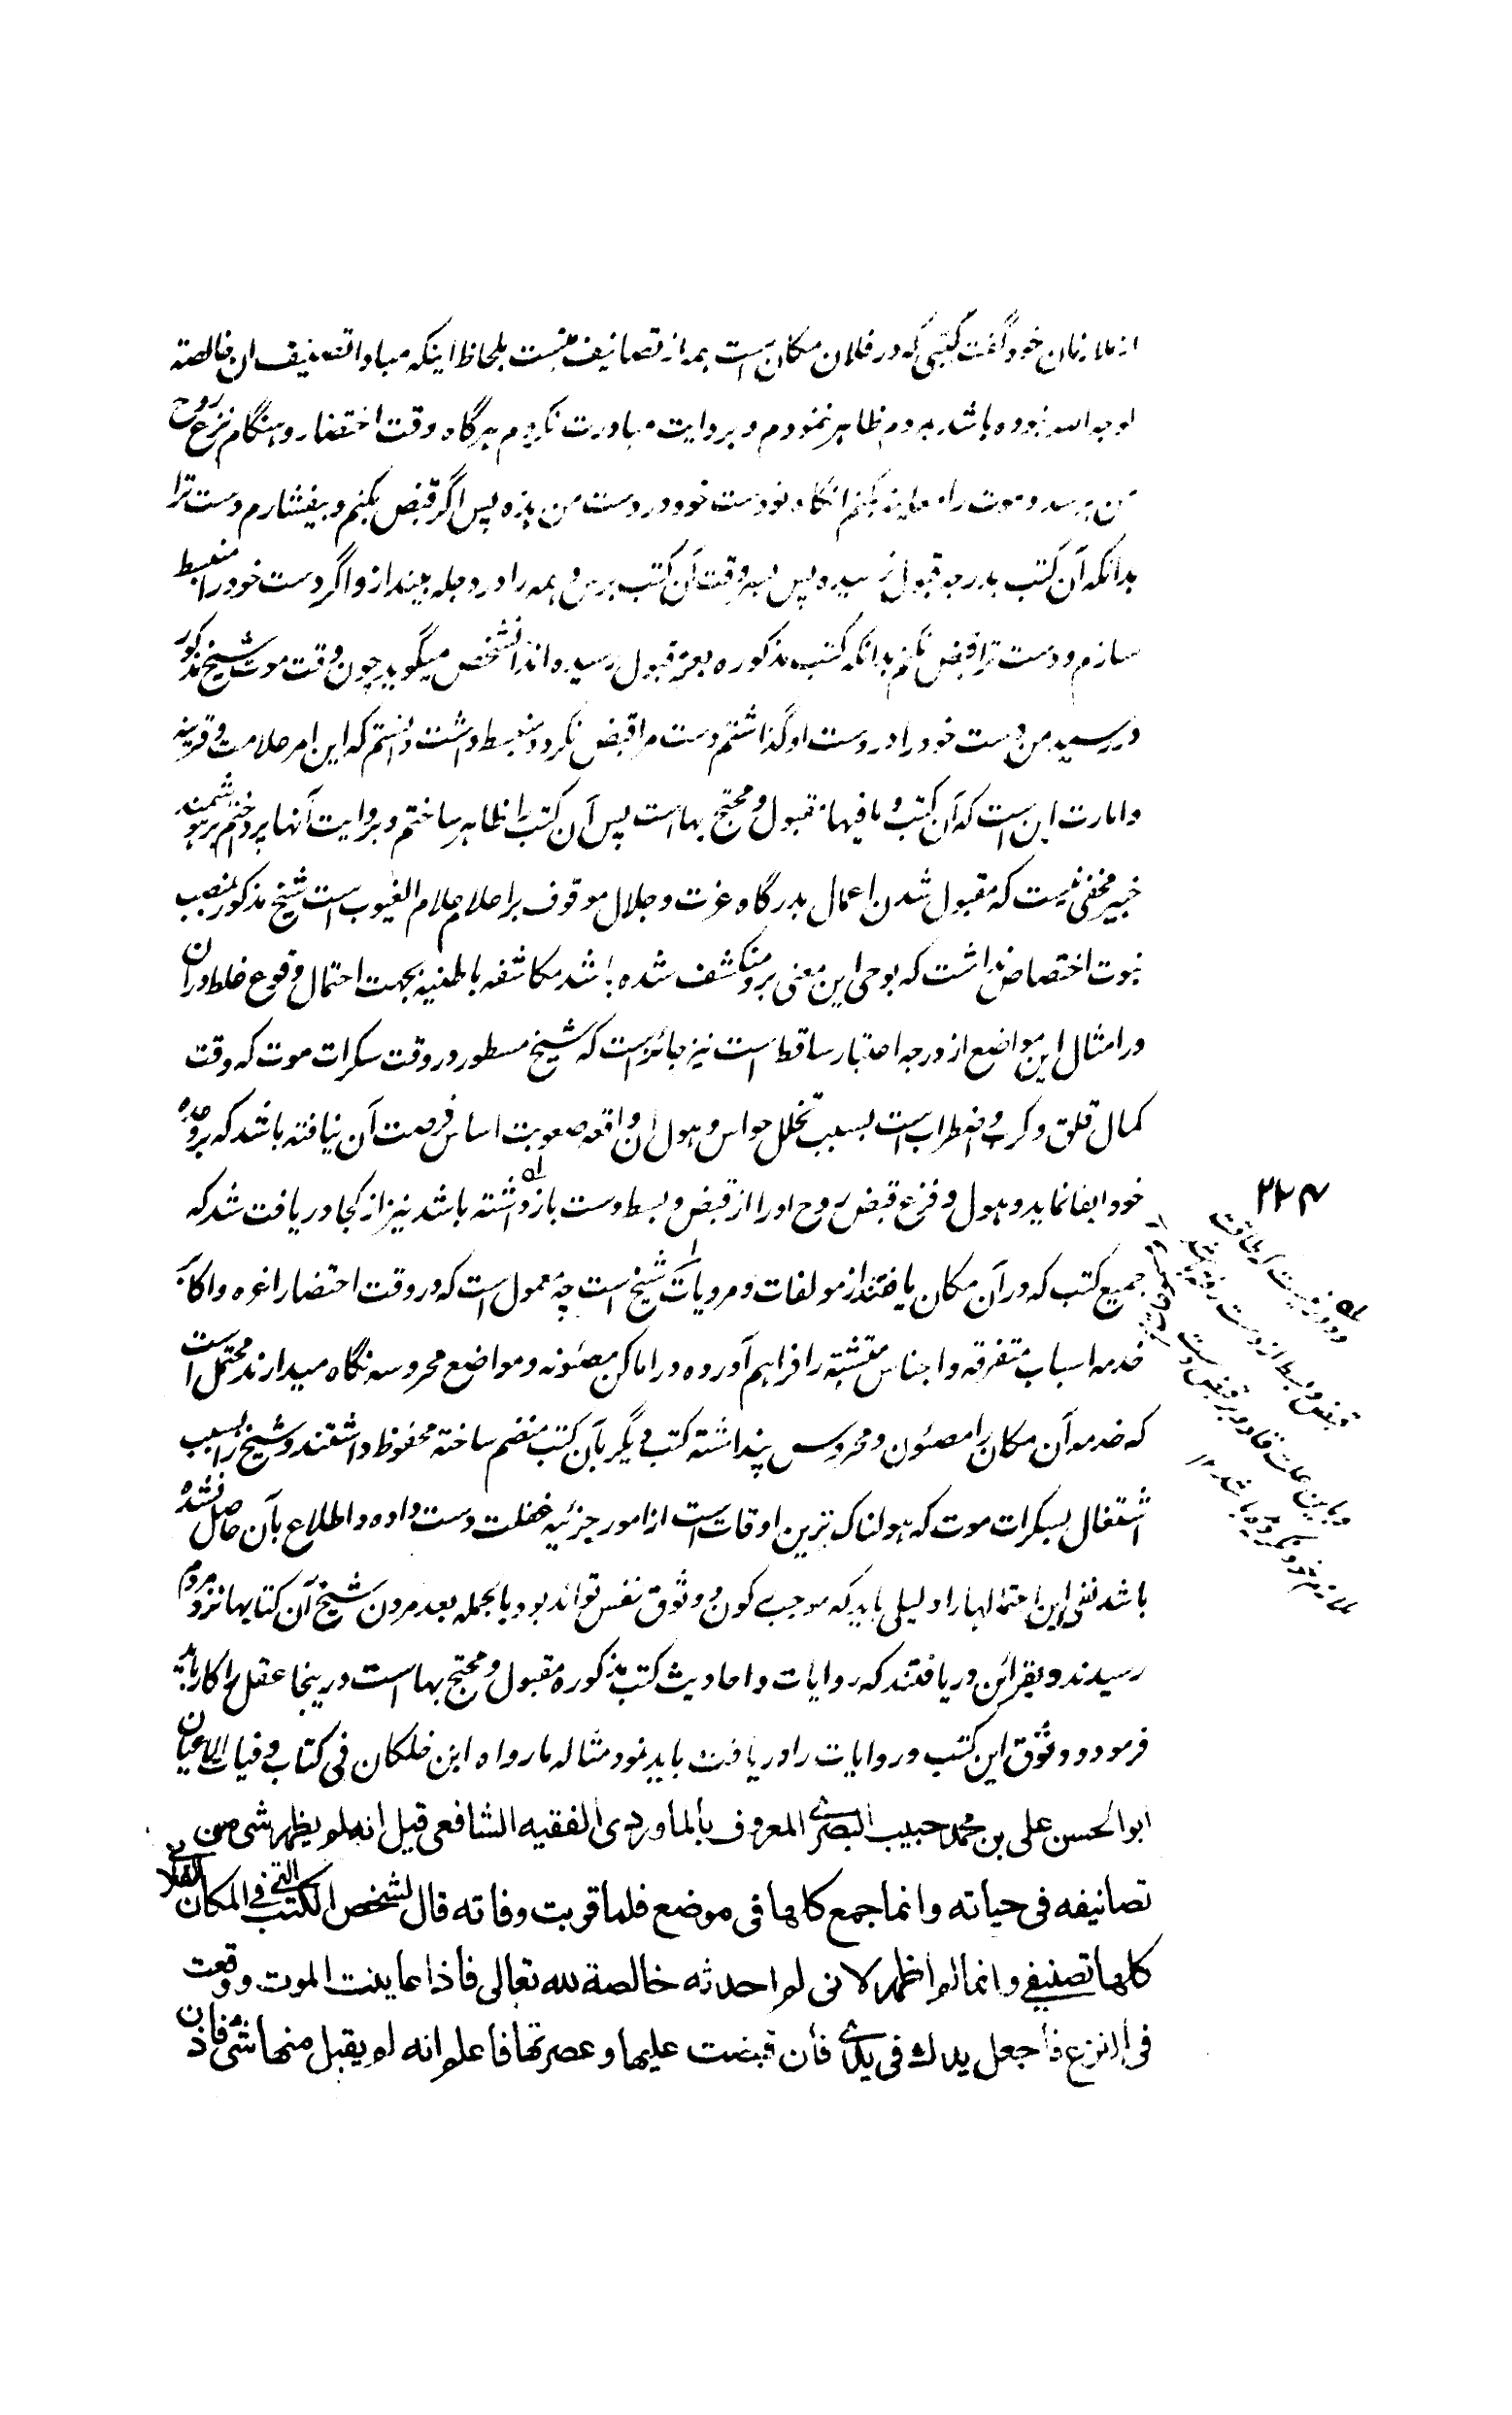 از ملازمان خود گفت کتبی که در فلان مکان است همه از تصانیف منست بلحاظ اینکه مبادا تصنیف آن خالصة
لوجه الله نبوده باشد بمردم ظاهر ننمودم و بروایت مبادرت نکردم هرگاه وقت احتضار و هنگام نزع روح
من برسد و موت را معاینه بکنم آنگاه تو دست خود در دست من بده پس اگر قبض بکنم و بیفشارم دست ترا
بدانکه آن کتب بدرجه قبول نرسیده پس بهر وقت آن کتب برس و همه را در دجله بینداز و اگر دست خود را منبسط
سازم و دست ترا قبض نکنم بدانکه کتب مذکوره بعز قبول رسیده اند آنشخص میگوید چون وقت موت شیخ مذکور
در رسید من دست خود را در دست او گذاشتم دست مرا قبض نکرد و منبسط داشت دانستم که این امر علامت و قرینه
و امارت این است که آن کتب و ما فیها مقبول و محتج بها است پس آن کتب را ظاهر ساختم و بروایت آنها پرداختم بر هوشمند
خبیر مخفی نیست که مقبول شدن اعمال بدرگاه عزت و جلال موقوف بر اعلام علام الغیوب است شیخ مذکور بمنصب
نبوت اختصاص نداشت که بوحی این معنی برو منکشف شده باشد مکاشفه باطنیه بجهت احتمال وقوع غلط در ان
و در امثال این مواضع از درجه اعتبار ساقط است نیز جائز است که شیخ مسطور در وقت سکرات موت که وقت
کمال قلق و کرب و اضطراب است بسبب تخلل حواس و هول ان واقعه صعوبت اساس فرصت آن نیافته باشد که بوعده
خود ایفا نماید و هول و فزع قبض روح او را از قبض و بسط دست باز داشته باشد نیز از کجا دریافت شد که
جمیع کتب که در آن مکان یافتند از مولفات و مرویات شیخ است چه معمول است که در وقت احتضار اعزه و اکابر
خدمه اسباب متفرقه و اجناس متشتته را فراهم آورده در اماکن مصئونه و مواضع محروسه نگاه میدارند محتمل است
که خدمه آن مکان را مصئون و محروس پنداشته کتب دیگر بآن کتب منضم ساخته محفوظ داشتند و شیخ را بسبب
اشتغال بسکرات موت که هولناک ترین اوقات است از امور جزئیه غفلت دست داده و اطلاع بآن حاصل نشده
باشد نفی این احتمالها را دلیلی باید که موجب رکون و وثوق نفس تواند بود بالجمله بعد مردن شیخ آن کتابها نزد مردم
رسیدند و بقرائن دریافتند که روایات و احادیث کتب مذکوره مقبول و محتج بها است در ینجا عقل را کار باید
فرمود و وثوق این کتب و روایات را دریافت باید نمود مثاله ما رواه ابن خلکان فی کتاب وفیات الاعیان
ابو الحسن علی بن محمد حبیب البصری المعروف بالماوردی الفقیه الشافعی قیل انه لم یظهر شی من
تصانیفه فی حیاته و انما جمع کلها فی موضع فلما قربت وفاته قال لشخص الکتب التی فی المکان الفلانی
کلها تصنیفی و انما لم اظهرها لانی لم احدثه خالصة لله تعالی فاذا عاینت الموت و وقعت
فی النزع فاجعل یدك فی یدی فان قبضت علیها و عصرتها فاعلم انه لم یقبل منها شی فان
۲۲۴